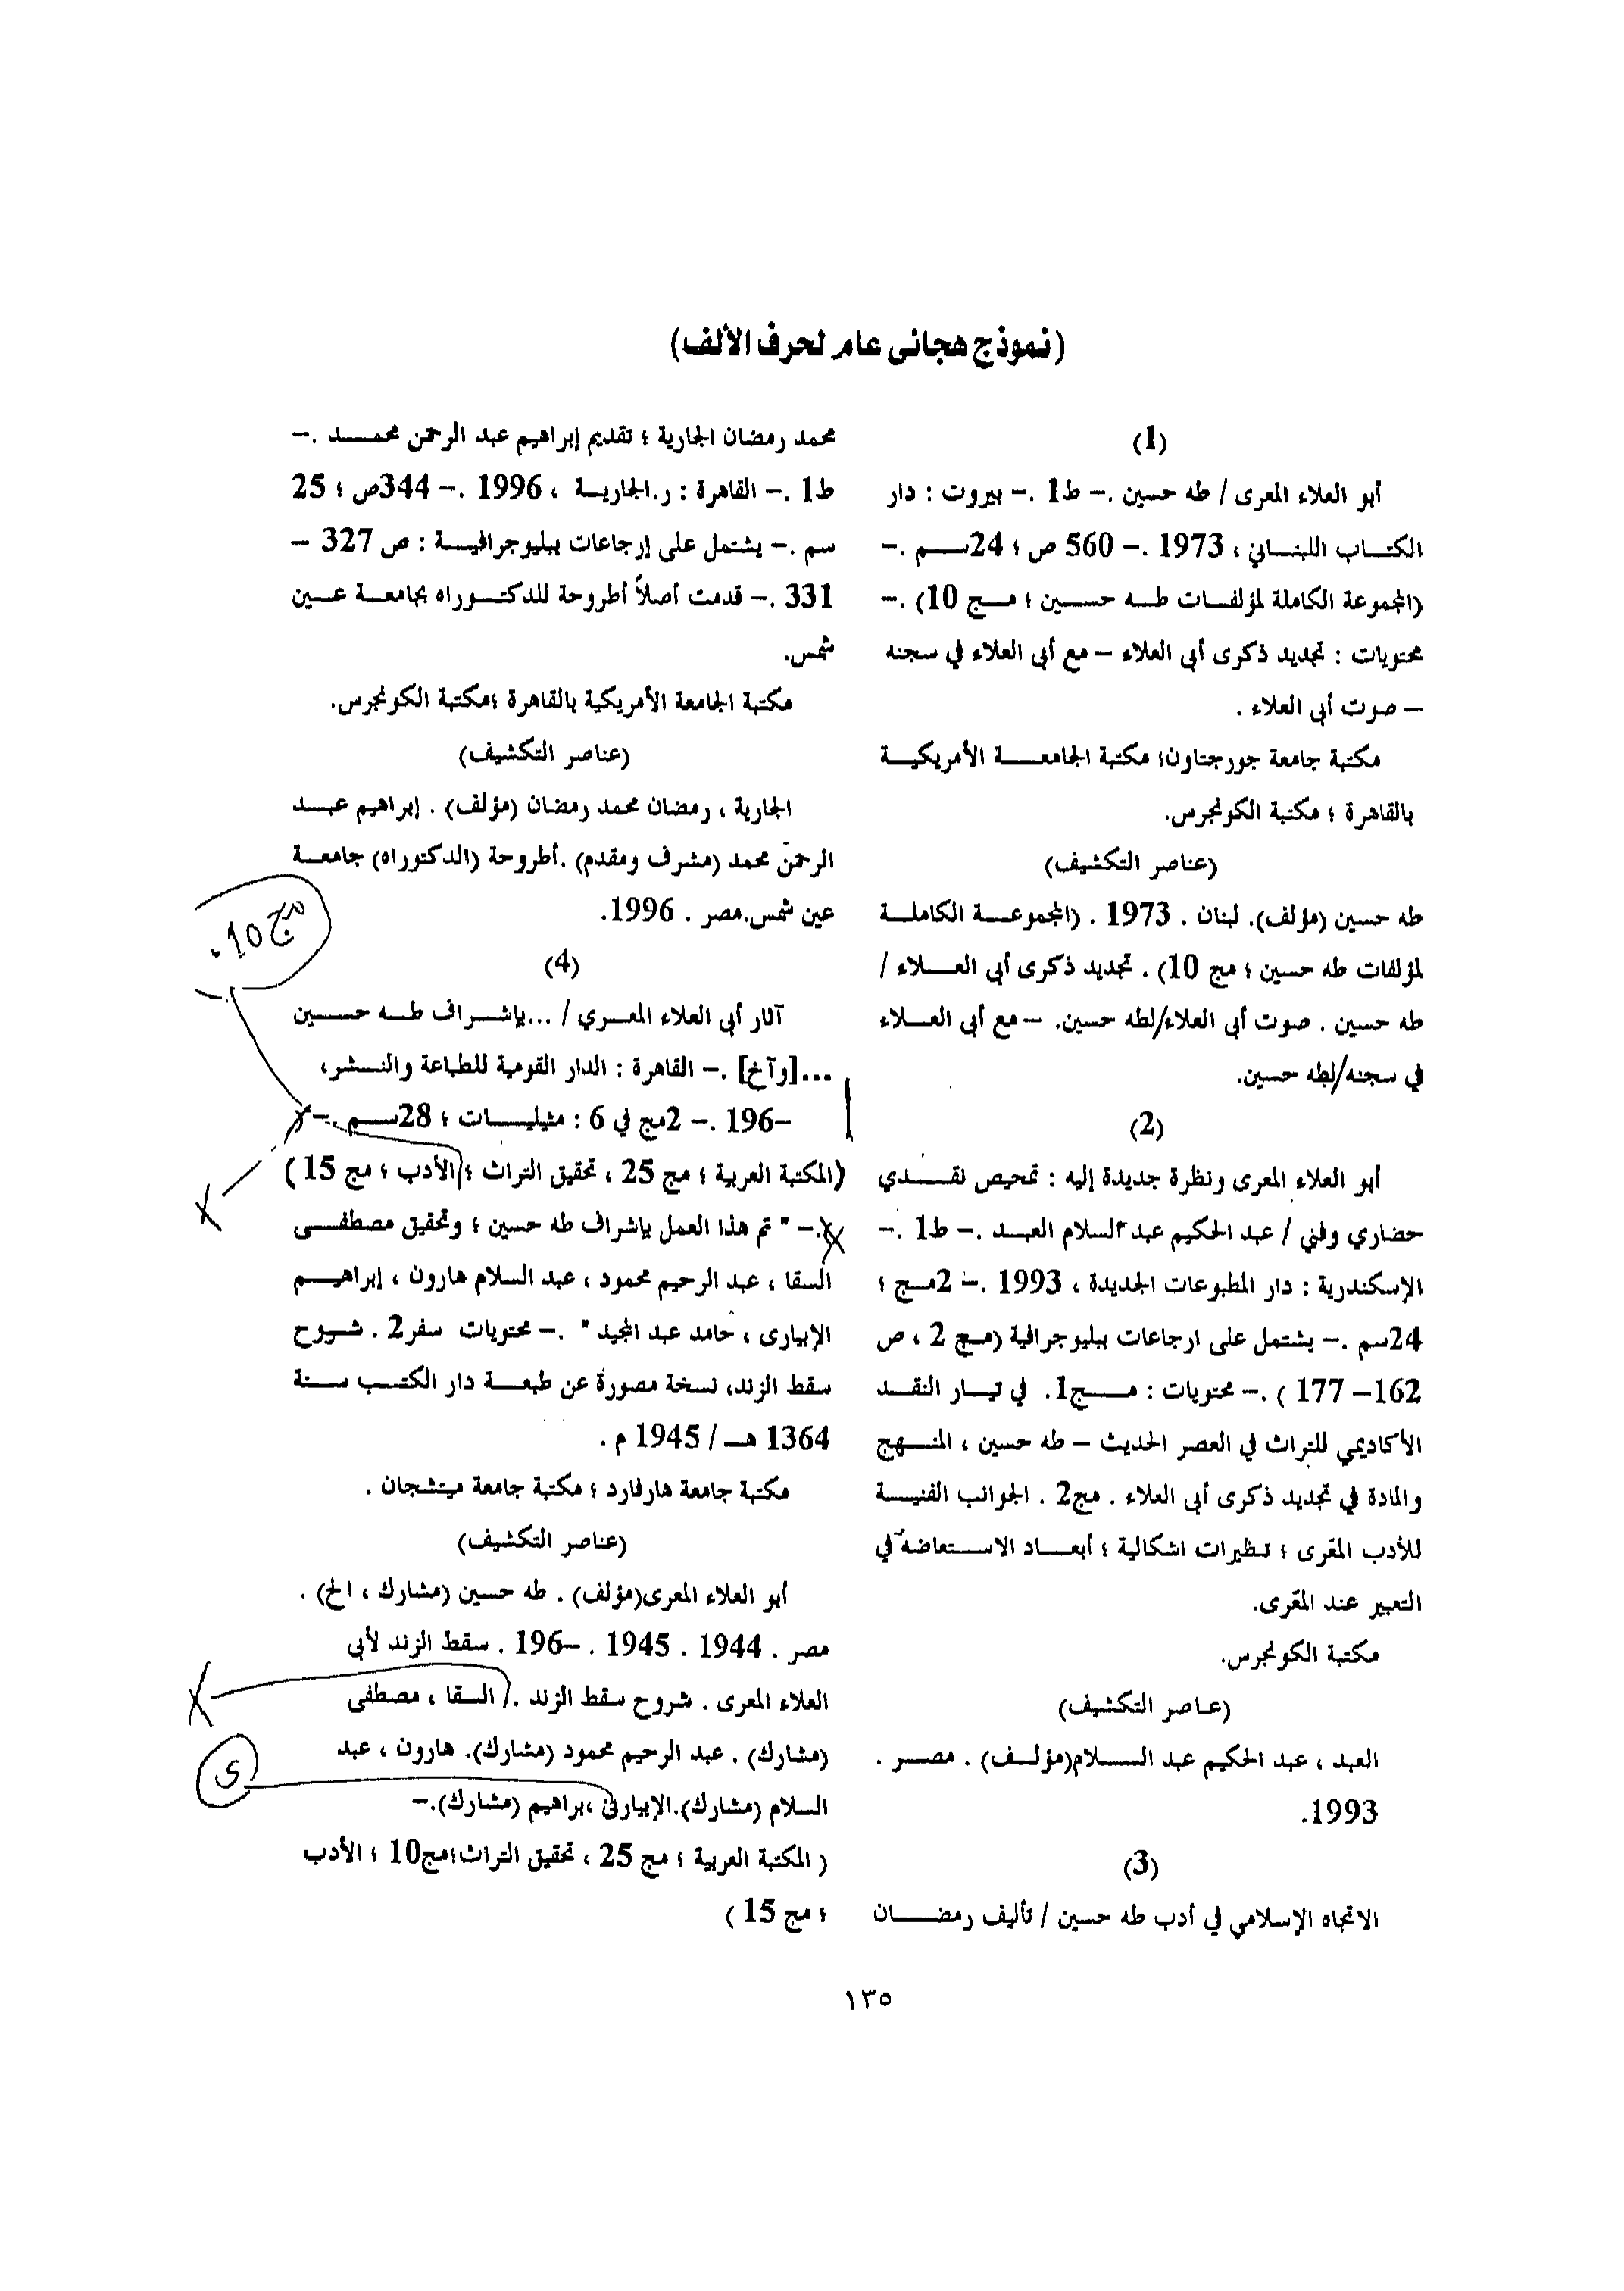 (نموذج هجائى عام لحرف الألف)
(1)
أبو العلاء المعرى / طه حسين .– ط1 .– بيروت : دار
الكتــاب اللبنــاني ، 1973 .– 560 ص ؛ 24ســم .–
(المجموعة الكاملة لمؤلفــات طــه حســين ؛ مــج 10) .–
محتويات : تجديد ذكرى أبى العلاء – مع أبى العلاء في سجنه
– صوت أبى العلاء .
مكتبة جامعة جورجتاون؛ مكتبة الجامعــــة الأمريكيــة
بالقاهرة ؛ مكتبة الكونجرس.
(عناصر التكشيف)
طه حسين (مؤلف). لبنان . 1973 . (المجموعــة الكاملــة
لمؤلفات طه حسين ؛ مج 10) . تجديد ذكرى أبى العــلاء /
طه حسين . صوت أبى العلاء/لطه حسين. – مع أبى العــلاء
في سجنه/لطه حسين.
(2)
أبو العلاء المعرى ونظرة جديدة إليه : تمحيص نقــدي
حضاري وفني / عبد الحكيم عبد السلام العبــد .– ط1 .–
الإسكندرية : دار المطبوعات الجديدة ، 1993 .– 2مــج ؛
24سم .– يشتمل على ارجاعات ببليوجرافية (مــج 2 ، ص
162– 177 ) .– محتويات : مـــج1. في تيــار النقــد
الأكاديمي للتراث في العصر الحديث – طه حسين ، المنــهج
والمادة في تجديد ذكرى أبى العلاء . مج2 . الجوانب الفنيــة
للأدب المعرى ؛ تنظيرات اشكالية ؛ أبعــاد الاســتعاضة في
التعبير عند المعرى.
مكتبة الكونجرس.
(عناصر التكشيف)
العبد ، عبد الحكيم عبد الســـلام(مؤلــف) . مصــر .
1993.
(3)
الاتجاه الإسلامي في أدب طه حسين / تأليف رمضـــان
محمد رمضان الجاربة ؛ تقديم إبراهيم عبد الرحمن محمــــد .–
ط1 .– القاهرة : ر.الجاربــة ، 1996 .– 344ص ؛ 25
سم .– يشتمل على إرجاعات ببليوجرافيــة : ص 327 –
331 .– قدمت أصلاً أطروحة للدكتــوراه بجامعــة عــين
شمس.
مكتبة الجامعة الأمريكية بالقاهرة ؛مكتبة الكونجرس.
(عناصر التكشيف)
الجاربة ، رمضان محمد رمضان (مؤلف) . إبراهيم عبــد
الرحمن محمد (مشرف ومقدم) .أطروحة (الدكتوراه) جامعــة
عين شمس.مصر . 1996.
مج 10 .
(4)
آثار أبى العلاء المعــري / ...بإشــراف طــه حســين
...[وآخ] .– القاهرة : الدار القومية للطباعة والنــشر،
–196 .– 2مج في 6 : مثيليــات ؛ 28ســم .–
(المكتبة العربية ؛ مج 25 ، تحقيق التراث ؛ الأدب ؛ مج 15 )
.– " تم هذا العمل بإشراف طه حسين ؛ وتحقيق مصطفــى
السقا ، عبد الرحيم محمود ، عبد السلام هارون ، إبراهيــم
الإبيارى ، حامد عبد المجيد " .– محتويات سفر2 . شــروح
سقط الزند، نسخة مصورة عن طبعــة دار الكتــب ســنة
1364 هــ / 1945 م .
مكتبة جامعة هارفارد ؛ مكتبة جامعة ميتشجان .
(عناصر التكشيف)
أبو العلاء المعرى(مؤلف) . طه حسين (مشارك ، الخ) .
مصر . 1944 . 1945 . –196 . سقط الزند لأبى
العلاء المعرى . شروح سقط الزند . السقا ، مصطفى
(مشارك) . عبد الرحيم محمود (مشارك). هارون ، عبد
السلام (مشارك).الإبيارى ،براهيم (مشارك).–
( المكتبة العربية ؛ مج 25 ، تحقيق التراث؛مج10 ؛ الأدب
؛ مج 15 )
١٣٥